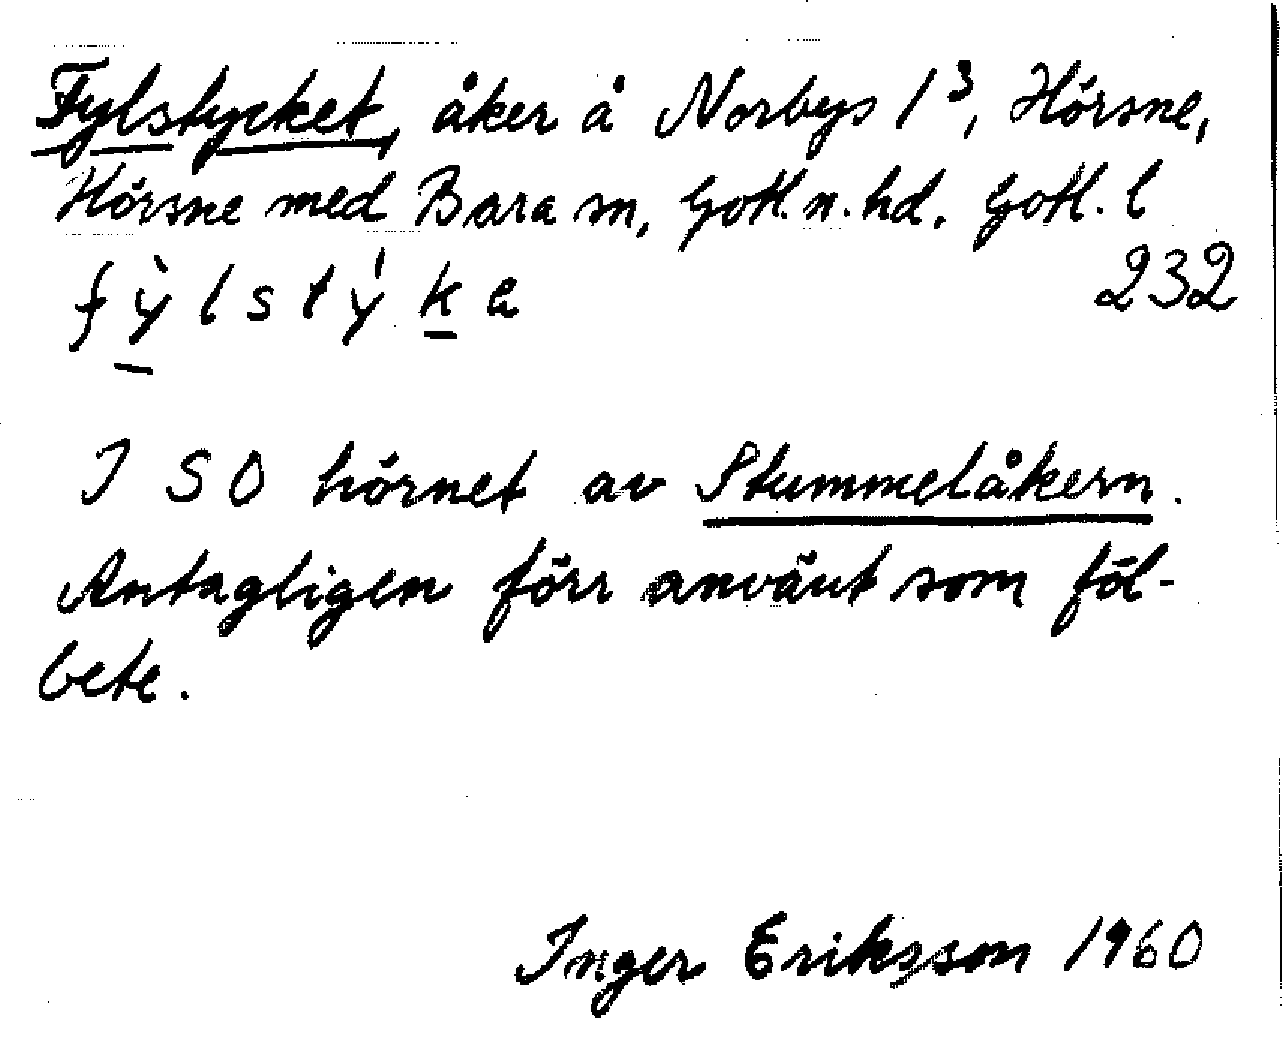 Fylstycket, åker å Norbys 1³, Hörsne,
Hörsne med Bara sn, Gotl. n. hd. Gotl. l
fỳlstýka 232
I SO hörnet av Stummelåkern.
Antagligen förr använt som föl-
bete.
Inger Eriksson 1960